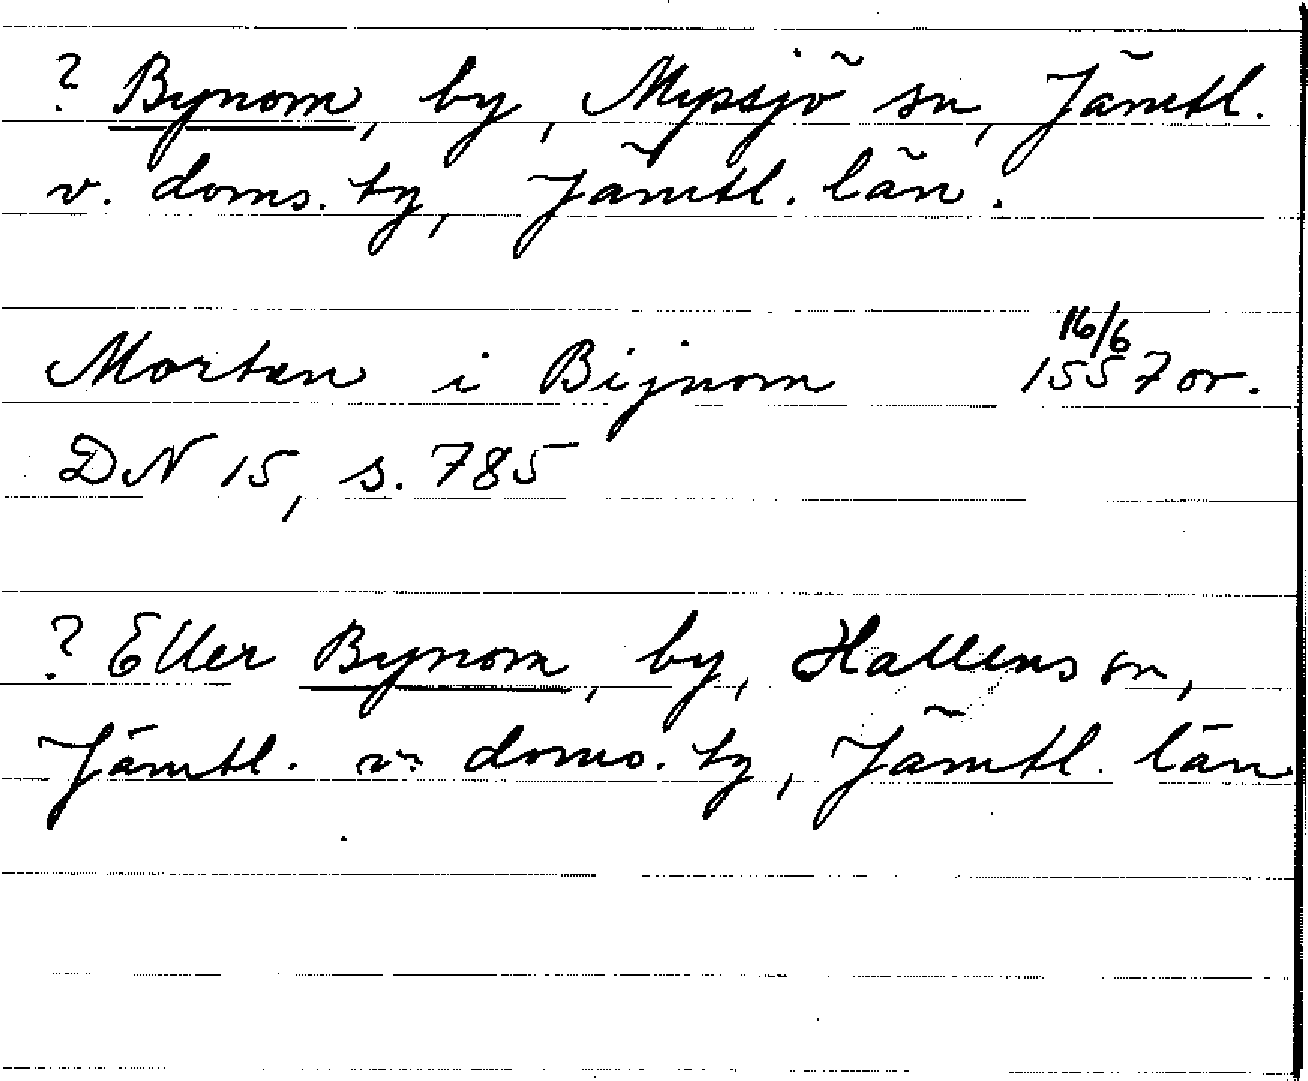 ? Bynom, by, Mypsjö sn, Jämtl.
v. doms. tg, Jämtl. län.
16/6
Morten i Bijnom 1557 or.
DN 15, s. 785
? Eller Bynom, by, Hallens sn,
Jämtl. v. doms. tg, Jämtl. län